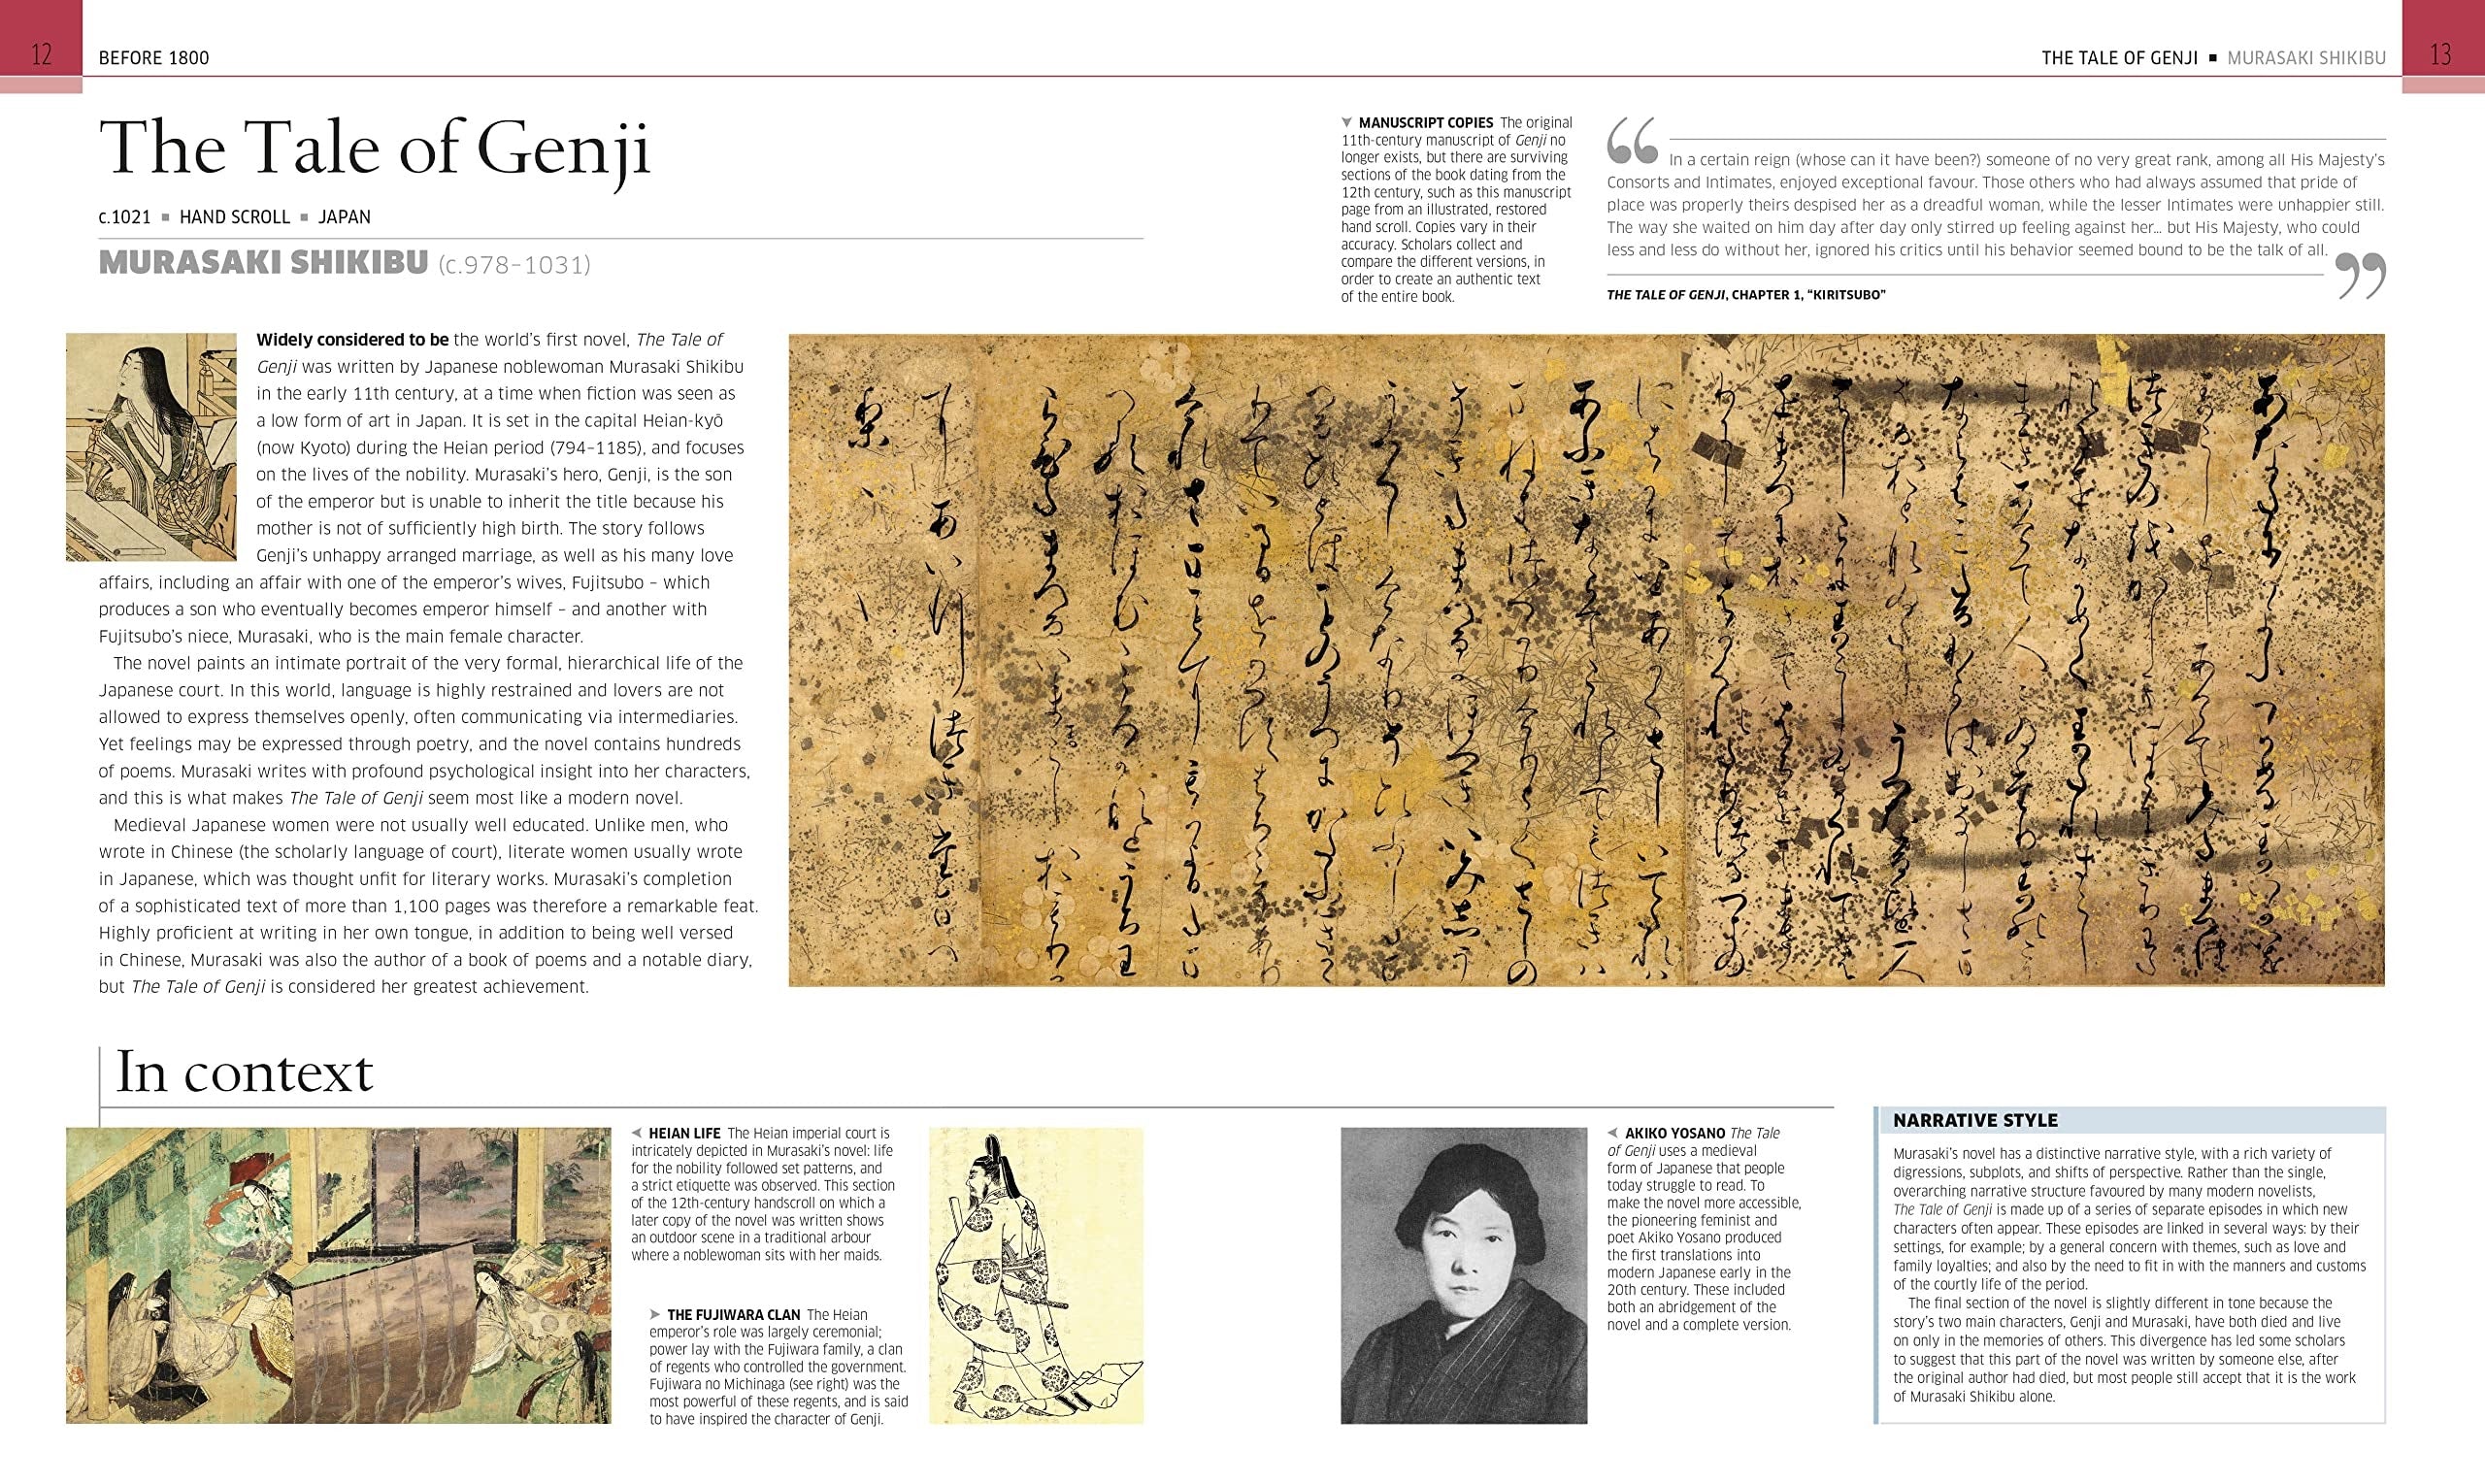 12
BEFORE 1800
THE TALE OF GENJI ▪ MURASAKI SHIKIBU
13
The Tale of Genji
c.1021 ▪ HAND SCROLL ▪ JAPAN
MURASAKI SHIKIBU (c.978–1031)
Widely considered to be the world's first novel, The Tale of
Genji was written by Japanese noblewoman Murasaki Shikibu
in the early 11th century, at a time when fiction was seen as
a low form of art in Japan. It is set in the capital Heian-kyō
(now Kyoto) during the Heian period (794–1185), and focuses
on the lives of the nobility. Murasaki's hero, Genji, is the son
of the emperor but is unable to inherit the title because his
mother is not of sufficiently high birth. The story follows
Genji's unhappy arranged marriage, as well as his many love
affairs, including an affair with one of the emperor's wives, Fujitsubo – which
produces a son who eventually becomes emperor himself – and another with
Fujitsubo's niece, Murasaki, who is the main female character.
The novel paints an intimate portrait of the very formal, hierarchical life of the
Japanese court. In this world, language is highly restrained and lovers are not
allowed to express themselves openly, often communicating via intermediaries.
Yet feelings may be expressed through poetry, and the novel contains hundreds
of poems. Murasaki writes with profound psychological insight into her characters,
and this is what makes The Tale of Genji seem most like a modern novel.
Medieval Japanese women were not usually well educated. Unlike men, who
wrote in Chinese (the scholarly language of court), literate women usually wrote
in Japanese, which was thought unfit for literary works. Murasaki's completion
of a sophisticated text of more than 1,100 pages was therefore a remarkable feat.
Highly proficient at writing in her own tongue, in addition to being well versed
in Chinese, Murasaki was also the author of a book of poems and a notable diary,
but The Tale of Genji is considered her greatest achievement.
MANUSCRIPT COPIES The original
11th-century manuscript of Genji no
longer exists, but there are surviving
sections of the book dating from the
12th century, such as this manuscript
page from an illustrated, restored
hand scroll. Copies vary in their
accuracy. Scholars collect and
compare the different versions, in
order to create an authentic text
of the entire book.
“In a certain reign (whose can it have been?) someone of no very great rank, among all His Majesty's
Consorts and Intimates, enjoyed exceptional favour. Those others who had always assumed that pride of
place was properly theirs despised her as a dreadful woman, while the lesser Intimates were unhappier still.
The way she waited on him day after day only stirred up feeling against her... but His Majesty, who could
less and less do without her, ignored his critics until his behavior seemed bound to be the talk of all.”
THE TALE OF GENJI, CHAPTER 1, “KIRITSUBO”
In context
HEIAN LIFE The Heian imperial court is
intricately depicted in Murasaki's novel: life
for the nobility followed set patterns, and
a strict etiquette was observed. This section
of the 12th-century handscroll on which a
later copy of the novel was written shows
an outdoor scene in a traditional arbour
where a noblewoman sits with her maids.
THE FUJIWARA CLAN The Heian
emperor's role was largely ceremonial;
power lay with the Fujiwara family, a clan
of regents who controlled the government.
Fujiwara no Michinaga (see right) was the
most powerful of these regents, and is said
to have inspired the character of Genji.
AKIKO YOSANO The Tale
of Genji uses a medieval
form of Japanese that people
today struggle to read. To
make the novel more accessible,
the pioneering feminist and
poet Akiko Yosano produced
the first translations into
modern Japanese early in the
20th century. These included
both an abridgement of the
novel and a complete version.
NARRATIVE STYLE
Murasaki's novel has a distinctive narrative style, with a rich variety of
digressions, subplots, and shifts of perspective. Rather than the single,
overarching narrative structure favoured by many modern novelists,
The Tale of Genji is made up of a series of separate episodes in which new
characters often appear. These episodes are linked in several ways: by their
settings, for example; by a general concern with themes, such as love and
family loyalties; and also by the need to fit in with the manners and customs
of the courtly life of the period.
The final section of the novel is slightly different in tone because the
story's two main characters, Genji and Murasaki, have both died and live
on only in the memories of others. This divergence has led some scholars
to suggest that this part of the novel was written by someone else, after
the original author had died, but most people still accept that it is the work
of Murasaki Shikibu alone.